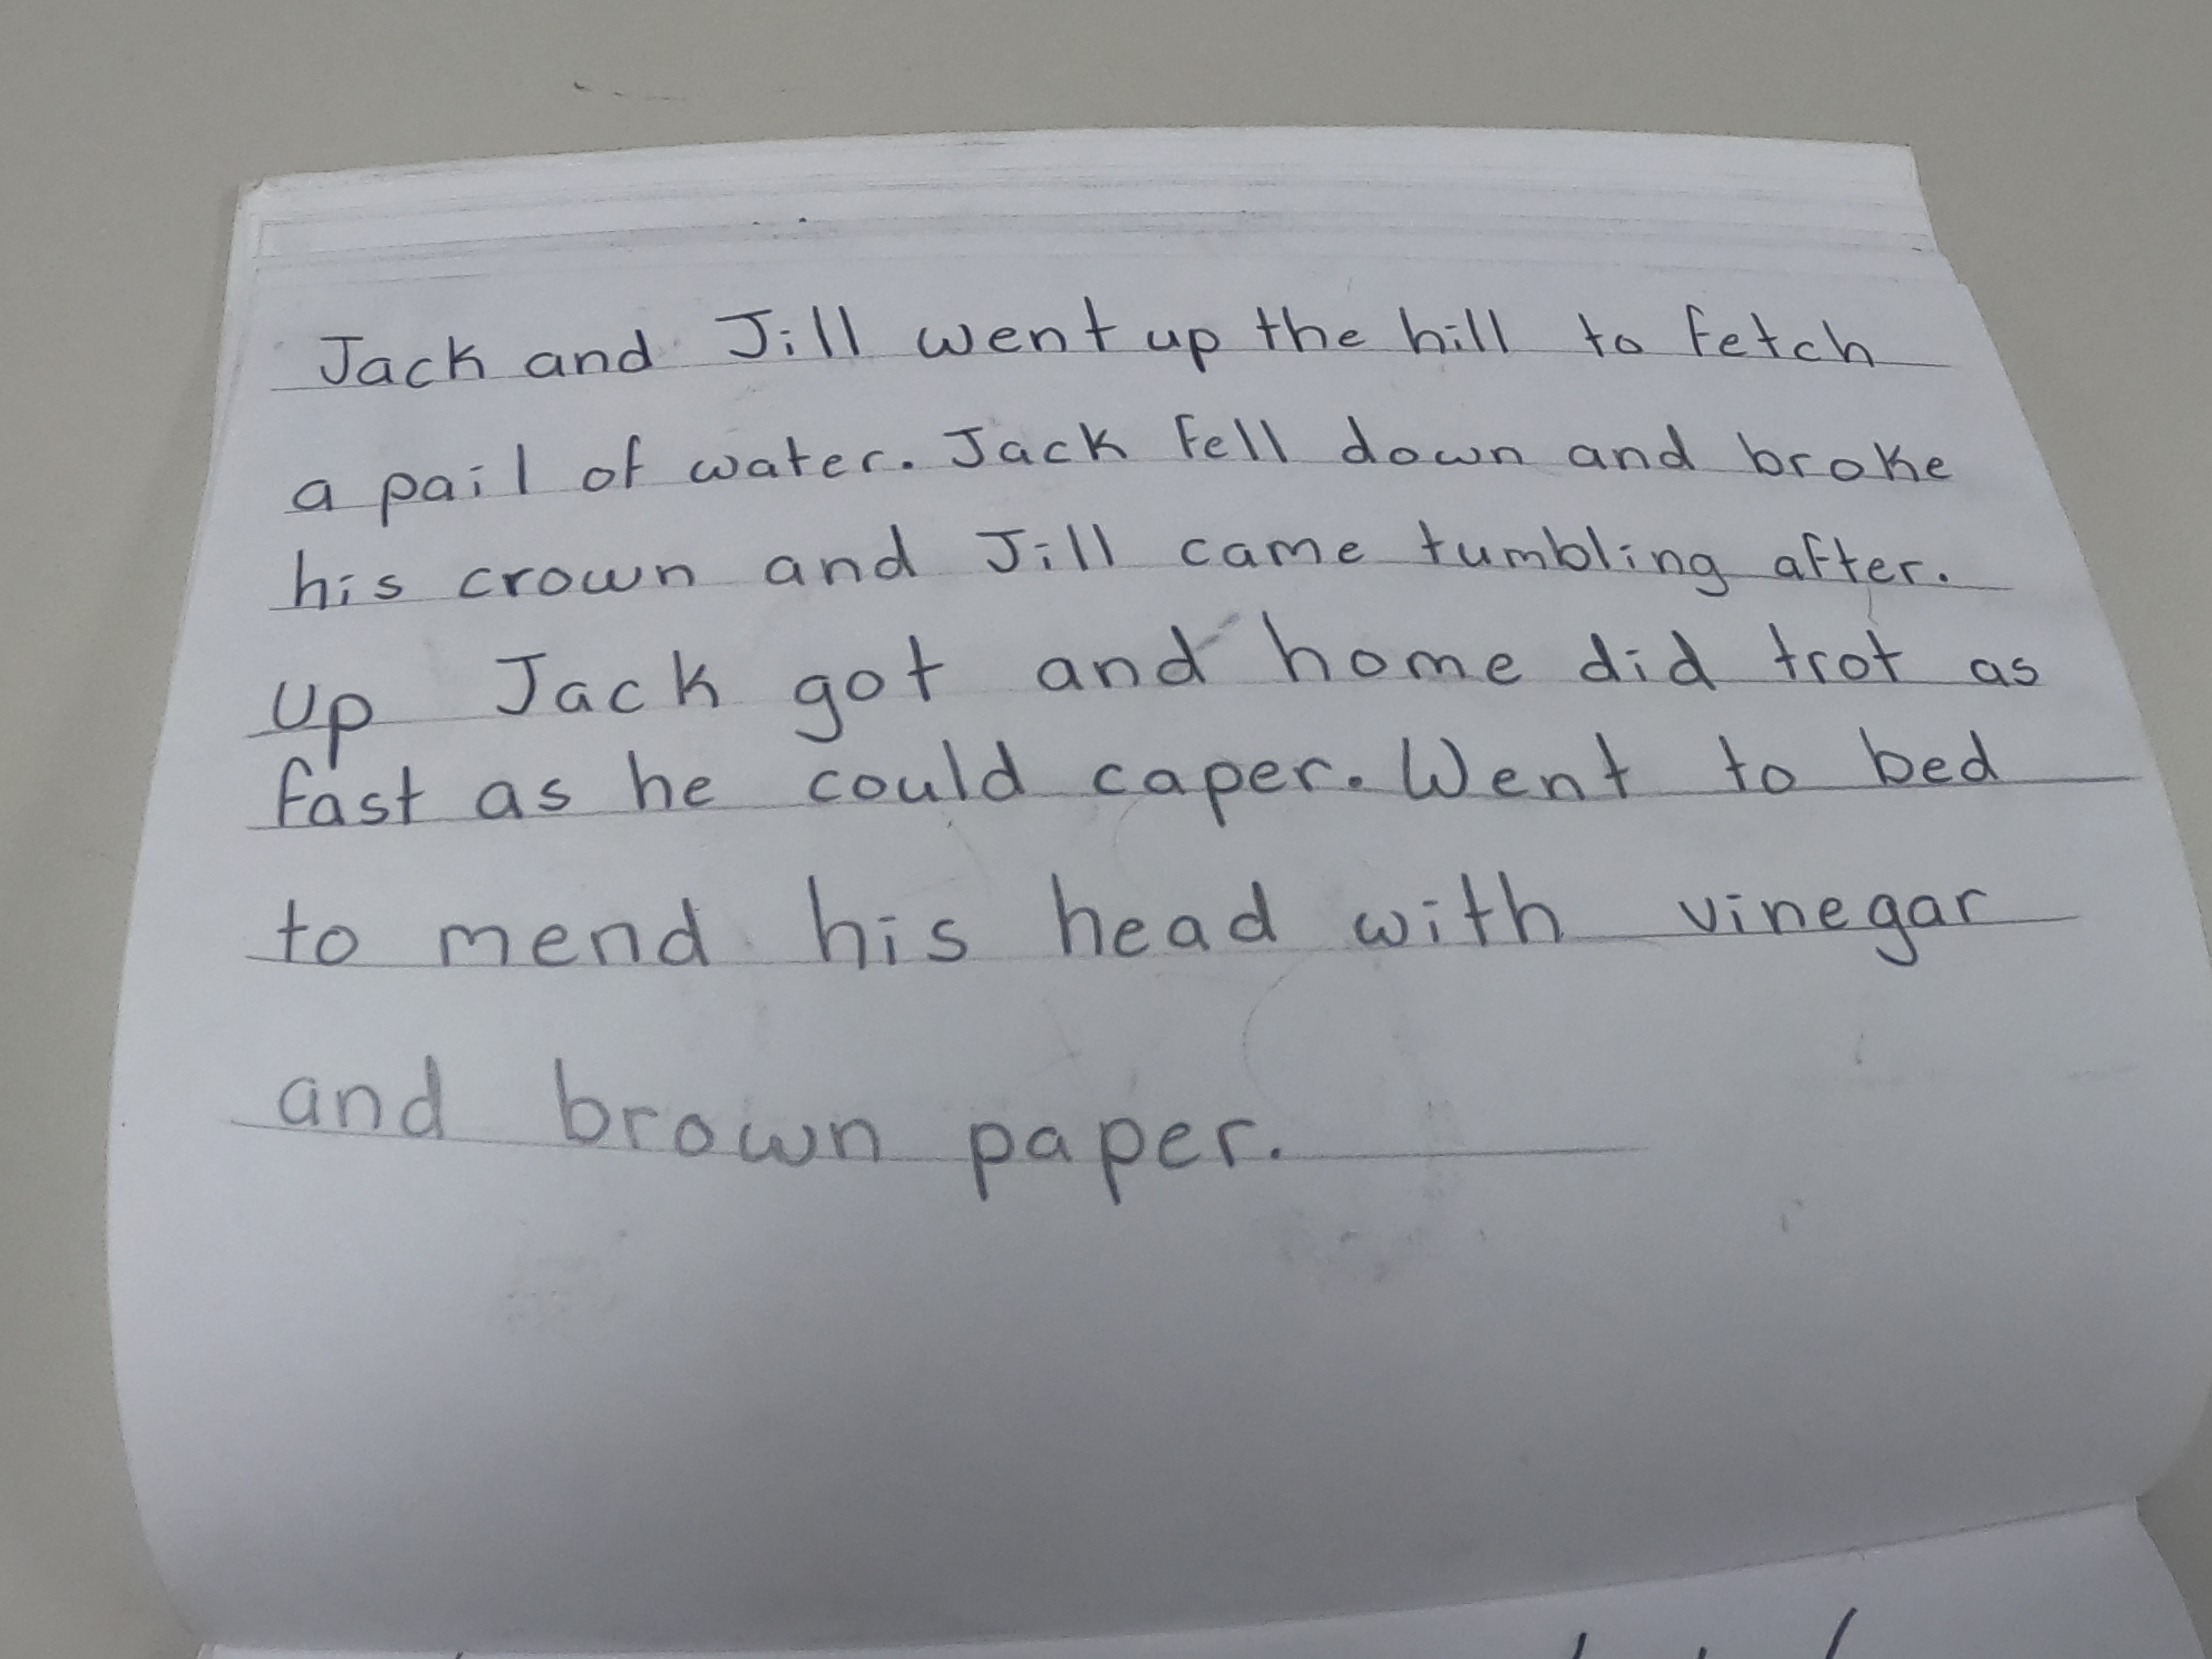 Jack and Jill went up the hill to fetch
a pail of water. Jack fell down and broke
his crown and Jill came tumbling after.
up Jack got and home did trot as
fast as he could caper. Went to bed
to mend his head with vinegar
and brown paper.